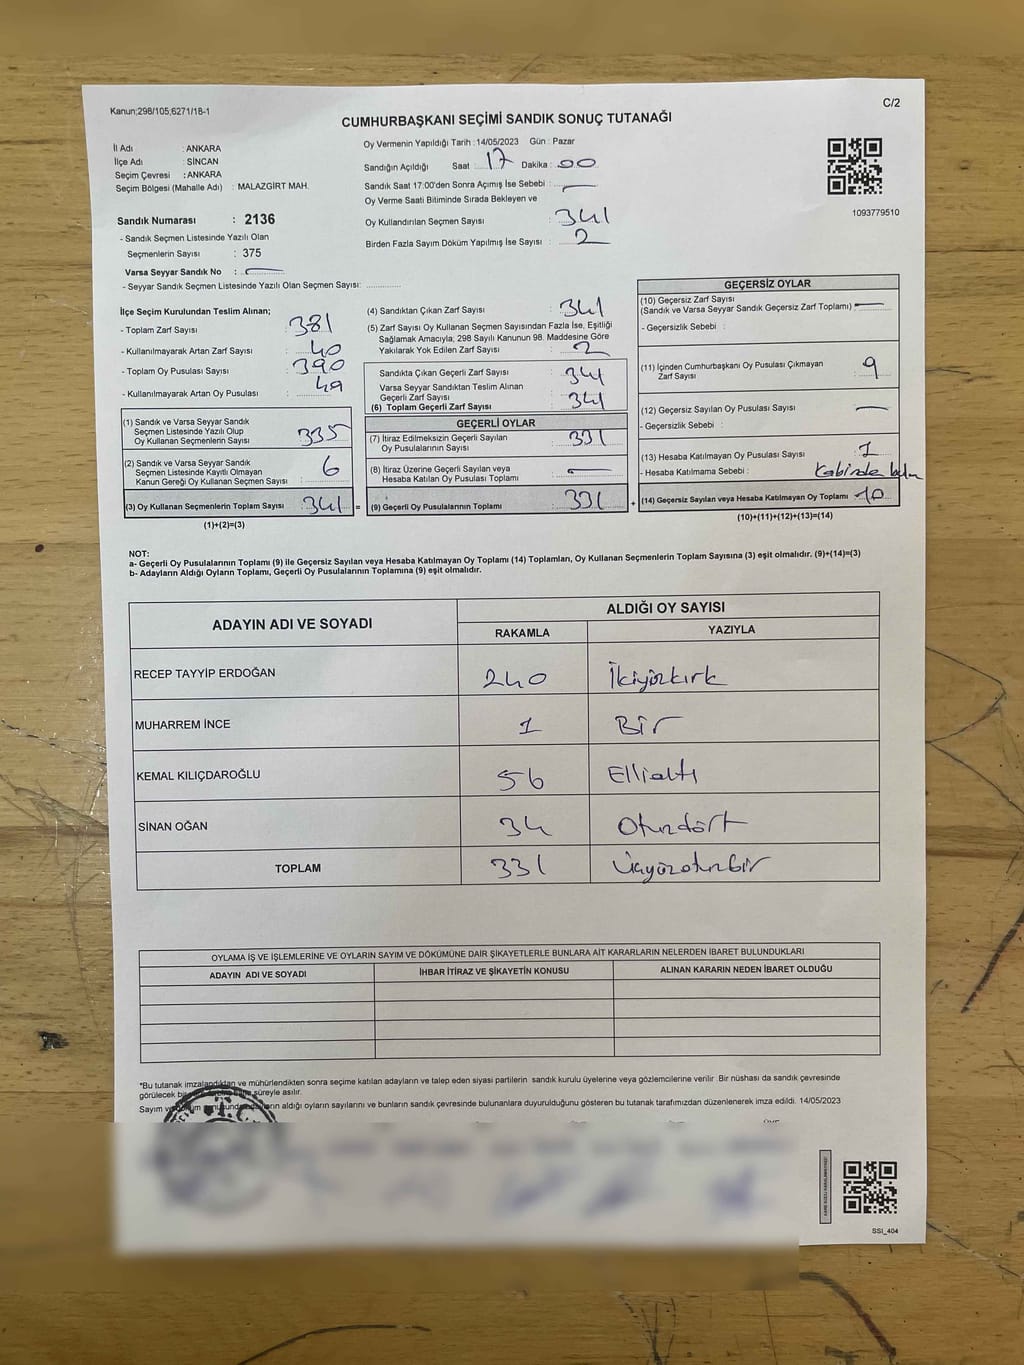 Kanun;298/105;6271/18-1
C/2
CUMHURBAŞKANI SEÇİMİ SANDIK SONUÇ TUTANAĞI
İl Adı : ANKARA
İlçe Adı : SİNCAN
Seçim Çevresi : ANKARA
Seçim Bölgesi (Mahalle Adı) : MALAZGİRT MAH.
Sandık Numarası : 2136
- Sandık Seçmen Listesinde Yazılı Olan
Seçmenlerin Sayısı : 375
Varsa Seyyar Sandık No :
- Seyyar Sandık Seçmen Listesinde Yazılı Olan Seçmen Sayısı:
Oy Vermenin Yapıldığı Tarih : 14/05/2023 Gün : Pazar
Sandığın Açıldığı Saat : 17 Dakika : 00
Sandık Saat 17:00'den Sonra Açımış İse Sebebi :
Oy Verme Saati Bitiminde Sırada Bekleyen ve
Oy Kullandırılan Seçmen Sayısı : 341
Birden Fazla Sayım Döküm Yapılmış İse Sayısı : 2
1093779510
İlçe Seçim Kurulundan Teslim Alınan;
- Toplam Zarf Sayısı : 381
- Kullanılmayarak Artan Zarf Sayısı : 40
- Toplam Oy Pusulası Sayısı : 390
- Kullanılmayarak Artan Oy Pusulası : 49
(1) Sandık ve Varsa Seyyar Sandık
Seçmen Listesinde Yazılı Olup
Oy Kullanan Seçmenlerin Sayısı : 335
(2) Sandık ve Varsa Seyyar Sandık
Seçmen Listesinde Kayıtlı Olmayan
Kanun Gereği Oy Kullanan Seçmen Sayısı : 6
(3) Oy Kullanan Seçmenlerin Toplam Sayısı : 341 =
(1)+(2)=(3)
(4) Sandıktan Çıkan Zarf Sayısı : 341
(5) Zarf Sayısı Oy Kullanan Seçmen Sayısından Fazla İse, Eşitliği
Sağlamak Amacıyla, 298 Sayılı Kanunun 98. Maddesine Göre
Yakılarak Yok Edilen Zarf Sayısı : 2
Sandıkta Çıkan Geçerli Zarf Sayısı : 341
Varsa Seyyar Sandıktan Teslim Alınan
Geçerli Zarf Sayısı :
(6) Toplam Geçerli Zarf Sayısı : 341
GEÇERLİ OYLAR
(7) İtiraz Edilmeksizin Geçerli Sayılan
Oy Pusulalarının Sayısı : 331
(8) İtiraz Üzerine Geçerli Sayılan veya
Hesaba Katılan Oy Pusulası Toplamı :
(9) Geçerli Oy Pusulalarının Toplamı : 331 +
GEÇERSİZ OYLAR
(10) Geçersiz Zarf Sayısı
(Sandık ve Varsa Seyyar Sandık Geçersiz Zarf Toplamı) :
- Geçersizlik Sebebi :
(11) İçinden Cumhurbaşkanı Oy Pusulası Çıkmayan
Zarf Sayısı : 9
(12) Geçersiz Sayılan Oy Pusulası Sayısı :
- Geçersizlik Sebebi :
(13) Hesaba Katılmayan Oy Pusulası Sayısı : 1
- Hesaba Katılmama Sebebi : Kabinde
(14) Geçersiz Sayılan veya Hesaba Katılmayan Oy Toplamı : 10
(10)+(11)+(12)+(13)=(14)
NOT:
a- Geçerli Oy Pusulalarının Toplamı (9) ile Geçersiz Sayılan veya Hesaba Katılmayan Oy Toplamı (14) Toplamları, Oy Kullanan Seçmenlerin Toplam Sayısına (3) eşit olmalıdır. (9)+(14)=(3)
b- Adayların Aldığı Oyların Toplamı, Geçerli Oy Pusulalarının Toplamına (9) eşit olmalıdır.
ADAYIN ADI VE SOYADI
ALDIĞI OY SAYISI
RAKAMLA YAZIYLA
RECEP TAYYİP ERDOĞAN 240 İkiyüzkırk
MUHARREM İNCE 1 Bir
KEMAL KILIÇDAROĞLU 56 Ellialtı
SİNAN OĞAN 34 Otuzdört
TOPLAM 331 Üçyüzotuzbir
OYLAMA İŞ VE İŞLEMLERİNE VE OYLARIN SAYIM VE DÖKÜMÜNE DAİR ŞİKAYETLERLE BUNLARA AİT KARARLARIN NELERDEN İBARET BULUNDUKLARI
ADAYIN ADI VE SOYADI İHBAR İTİRAZ VE ŞİKAYETİN KONUSU ALINAN KARARIN NEDEN İBARET OLDUĞU
*Bu tutanak imzalandıktan ve mühürlendikten sonra seçime katılan adayların ve talep eden siyasi partilerin sandık kurulu üyelerine veya gözlemcilerine verilir .Bir nüshası da sandık çevresinde
görülecek bir süreyle asılır.
Sayım ve aldığı oyların sayılarını ve bunların sandık çevresinde bulunanlara duyurulduğunu gösteren bu tutanak tarafımızdan düzenlenerek imza edildi. 14/05/2023
T.C.
SSI_404